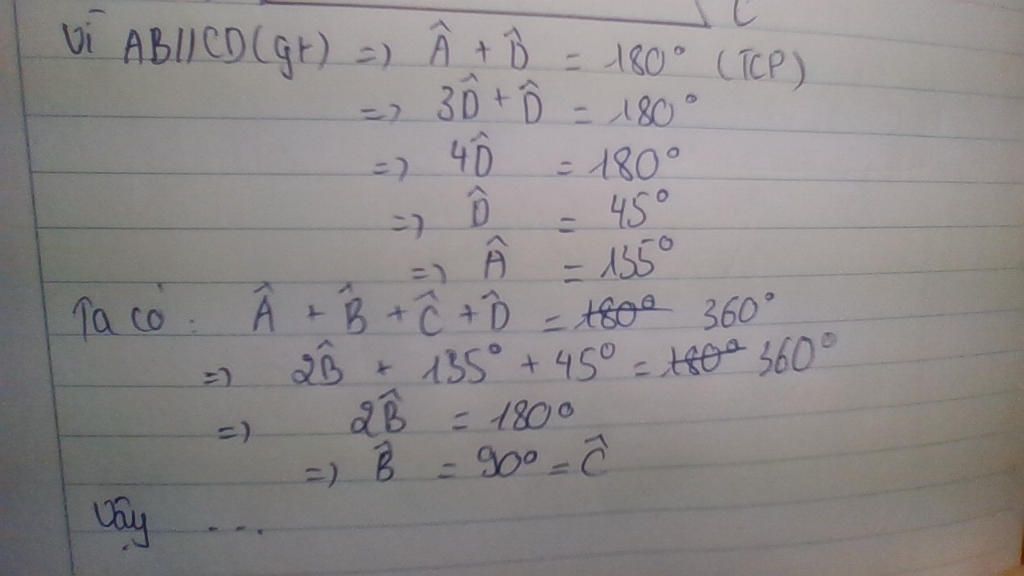 C
Vì AB//CD(gt) => Â + D̂ = 180° (TCP)
=> 3D̂ + D̂ = 180°
=> 4D̂ = 180°
=> D̂ = 45°
=> Â = 135°
Ta có: Â + B̂ + Ĉ + D̂ = 180° 360°
=> 2B̂ + 135° + 45° = 180° 360°
=> 2B̂ = 180°
=> B̂ = 90° = Ĉ
Vậy ....